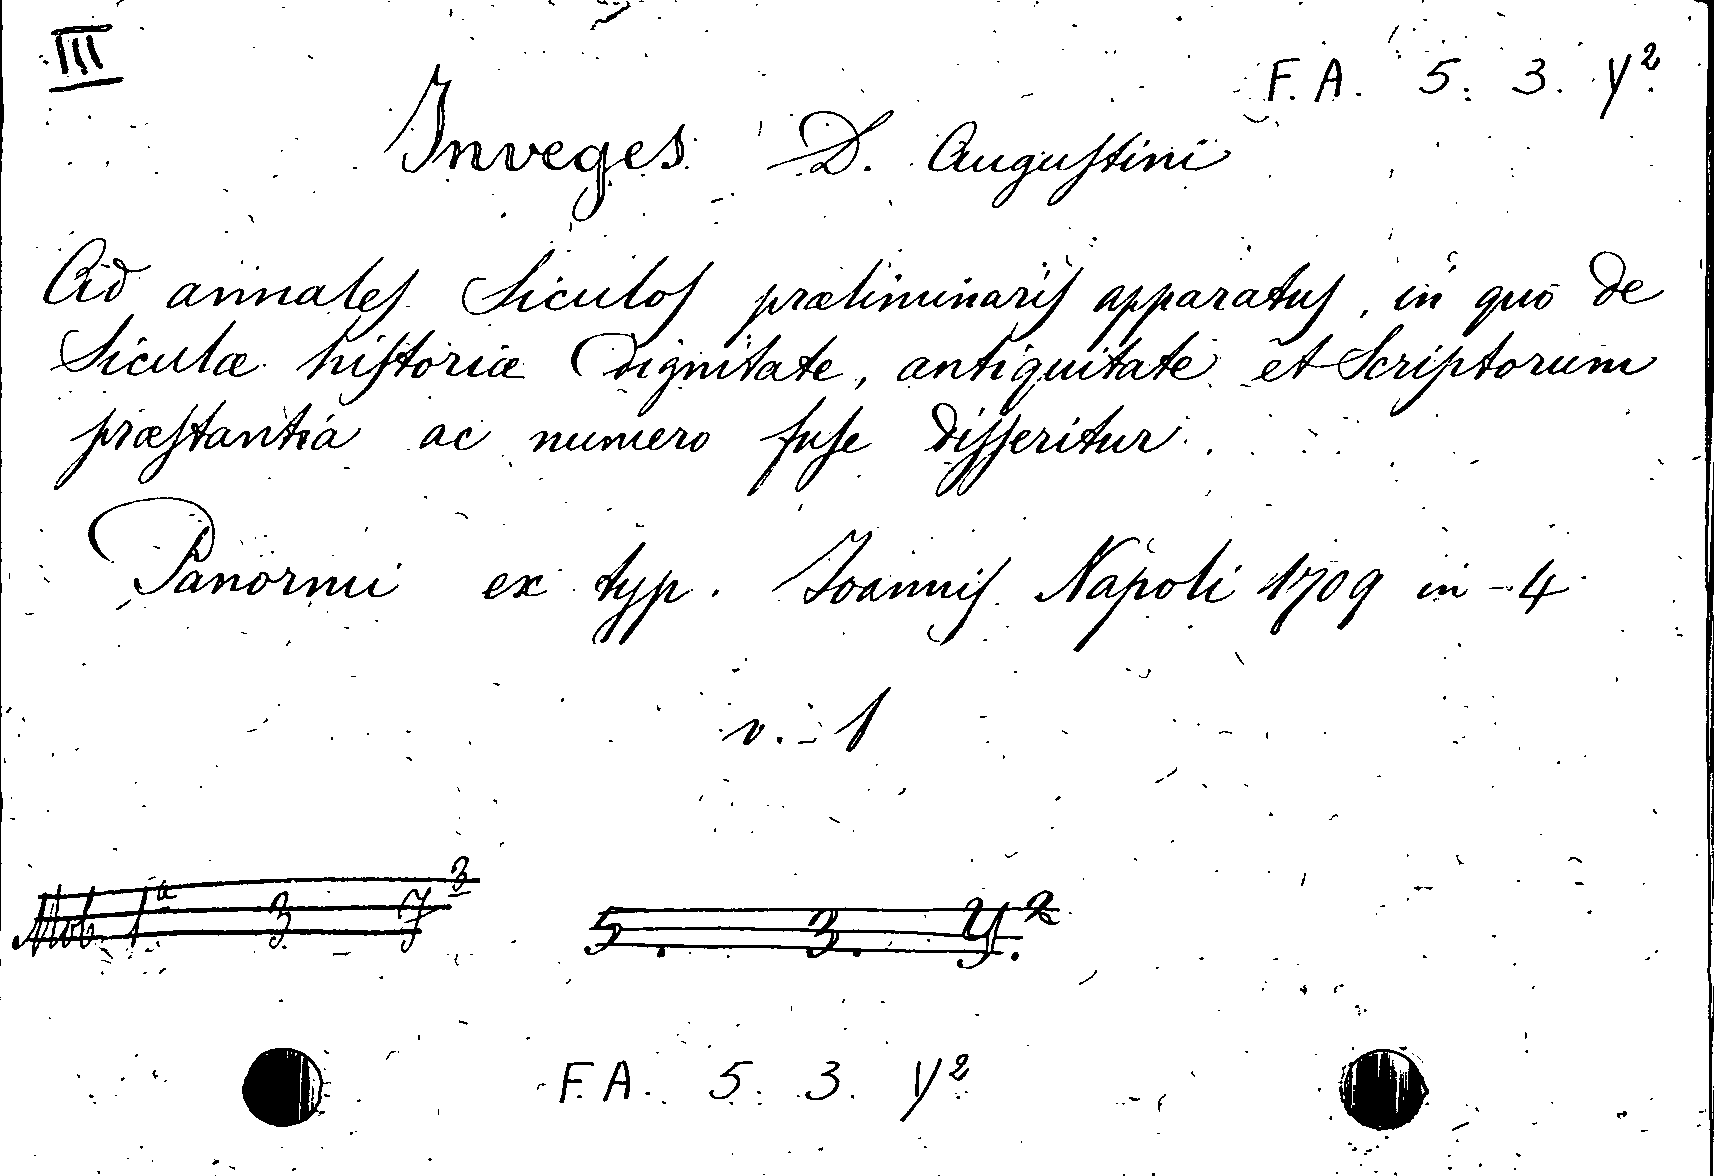 III
F. A. 5. 3. y²
Inveges D. Augustini
Ad annales Siculos præliminaris apparatus, in quo de
Siculæ historiæ dignitate, antiquitate et Scriptorum
præstantia ac numero fuse disseritur.
Panormi ex typ. Joannis Napoli 1709 in-4
v. 1
Mob. 1ª 3 7³
5. 3. y².
F. A. 5. 3. y²